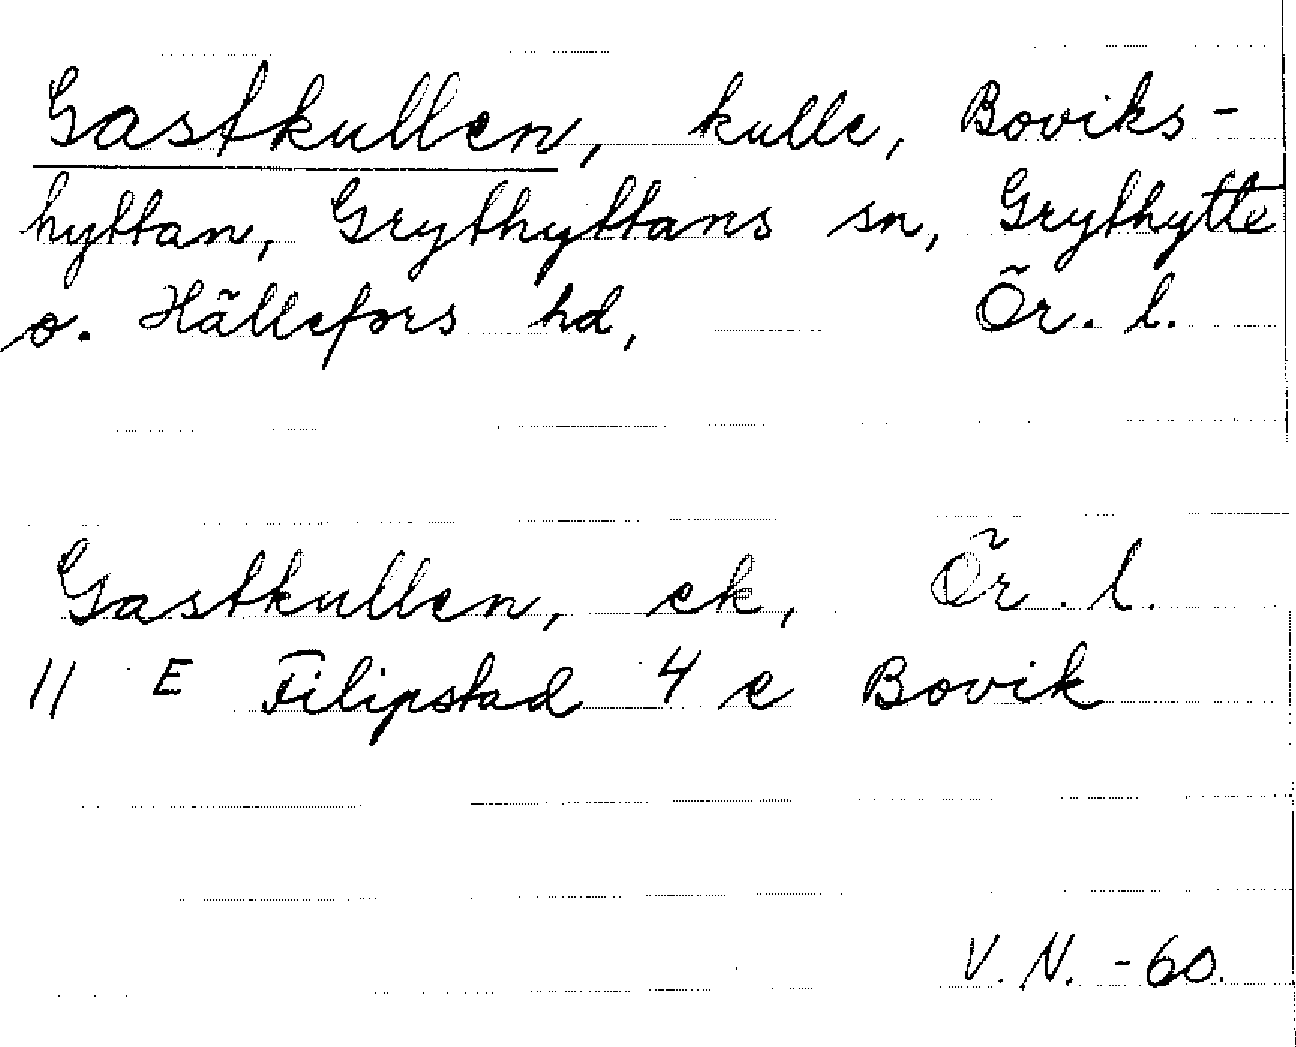 Gastkullen, kulle, Boviks-
hyttan, Grythyttans sn, Grythytte
o. Hällefors hd, Ör. l.
Gastkullen, ek, Ör. l.
11 E Filipstad 4 e Bovik
V. N. -60.